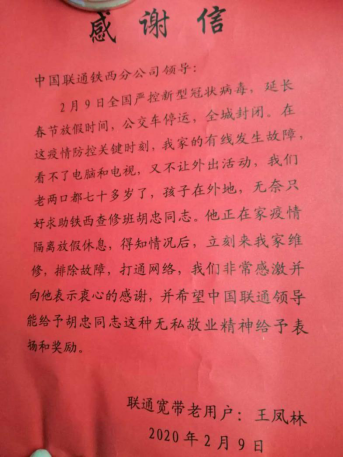 感谢信
中国联通铁西分公司领导：
2月9日全国严控新型冠状病毒，延长
春节放假时间，公交车停运，全城封闭。在
这疫情防控关键时刻，我家的有线发生故障，
看不了电脑和电视，又不让外出活动，我们
老两口都七十多岁了，孩子在外地，无奈只
好求助铁西查修班胡忠同志。他正在家疫情
隔离放假休息，得知情况后，立刻来我家维
修，排除故障，打通网络，我们非常感激并
向他表示衷心的感谢，并希望中国联通领导
能给予胡忠同志这种无私敬业精神给予表
扬和奖励。
联通宽带老用户：王凤林
2020年2月9日